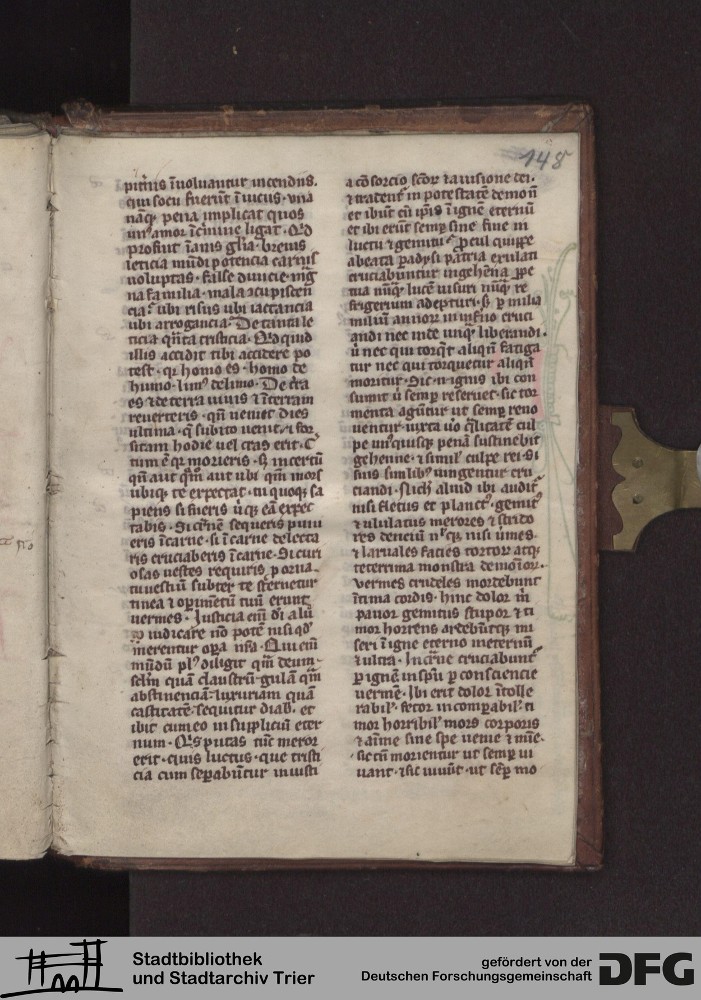 148
pitriis ĩuoluantur incendiis.
qui socii fuerũt ĩ uicus · una
naq; pena implicat quos
unꝰ amor ĩ crimine ligat · Qd
profuit ĩanis glia · breuis
leticia mũdi potencia carnis
uoluptas · false diuicie · mg̃
na familia · mala ꝯcupiscen
cia · ubi risus ubi iactancia
ubi arrogancia · De tanta le
ticia qñta tristicia · Qd quid
illis accidit tibi accidere po
test · qr homo es · homo de
humo · limꝰ de limo · De t̃ra
es ⁊ de terra uiuis ⁊ ĩ terram
reuerteris · qñ ueniet dies
ultima · q̃ subito uenit · ⁊ for
sitam hodie uel cras erit · C̃
tum ẽ qr morieris · sꝫ incertũ
qñ aut qm̃ aut ubi · qm̃ mors
ubiq; te expectat · tu quoq; sa
piens si fueris ubq; eã expec
tabis · Si carnẽ sequeris puni
eris ĩ carne · si ĩ carne delecta
ris cruciaberis ĩ carne · Si curi
osas uestes requiris · p orna
tu uestiũ subter te sternetur
tinea ⁊ opimetũ tuũ erunt
uermes · Iusticia em̃ di aliᵭ
iudicare nõ potest nisi qd
merentur opa nr̃a · Qui em̃
mũdũ plꝰ diligit qm̃ deum
sclm̃ quã claustrũ · gulam qm̃
abstinenciã · luxuriam quã
castitatẽ · sequitur diab · et
ibit cum eo in suppliciũ eter
num · Qͥs putas tũc meror
erit · quis luctus · que tristi
cia cum sepabũtur iniusti
a cõsorcio scõr ⁊ a uisione dei ·
⁊ tradent̃ in potestatẽ demonũ
et ibũt cũ ip̃is ĩ ignẽ eternũ
et ibi erũt semp sine fine in
luctu ⁊ gemitu · Procul quippe
a beata padysi patria exulati
cruciabuntur in gehẽna ppe
tua nũq; lucẽ uisuri nũq; re
frigerium adepturi · sꝫ p milia
miliũ annor in inf̃no cruci
andi nec inde unq; liberandi ·
ubi nec qui torqͣt aliqñ fatiga
tur nec qui torquetur aliqñ
moritur · Sic n ignis ibi con
sumit ut semp reseruet · sic tor
menta agũtur ut semp reno
uentur · iuxta uo q̃litatẽ cul
pe unꝰquisq; penã sustinebit
gehenne · ⁊ simil̃ culpe rei · Si
suis similibꝰ iungentur cru
ciandi · Nichil aliud ibi audit̃
nisi fletus et planctꝰ · gemitꝰ
⁊ ululatus merores ⁊ strido
res denciũ nͥcq; nisi ũmes ·
⁊ laruales facies tortor atq;
teterrima monstra demonior ·
uermes crudeles mordebunt
ĩtima cordis · hinc dolor in̄
pauor gemitus stupor ⁊ ti
mor horrens ardebũtq; mi
seri ĩ igne eterno ineternũ
⁊ ultra · In carne cruciabunt̃
p ignẽ in spũ p consciencie
uermẽ · Ibi erit dolor ĩtolle
rabil · fetor incomparabil · ti
mor horribil · mors corporis
⁊ anime sine spe uenie ⁊ mĩe ·
sic tñ morientur ut semp ui
uant · ⁊ sic uiuũt · ut sẽp mo
Stadtbibliothek
und Stadtarchiv Trier
gefördert von der
Deutschen Forschungsgemeinschaft
DFG